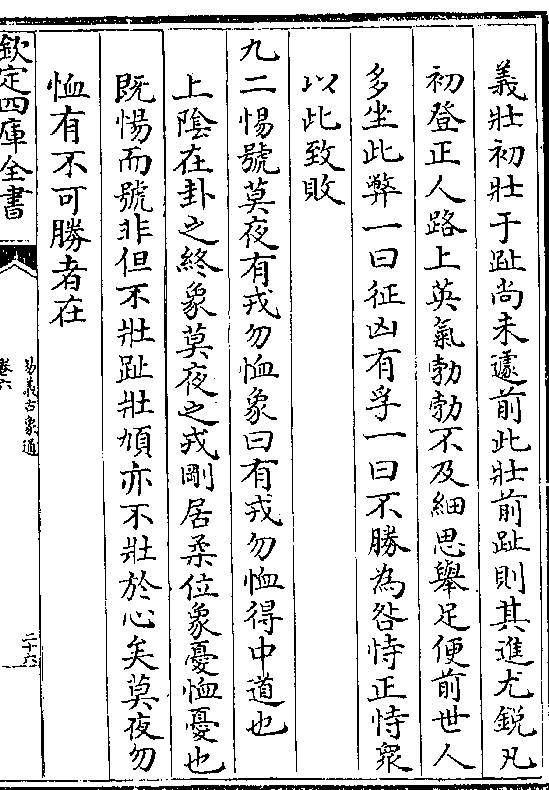 義壯初壯于趾尚未遽前此壯前趾則其進尤銳凡
初登正人路上英氣勃勃不及細思舉足便前世人
多坐此弊一曰征凶有孚一曰不勝為咎恃正恃衆
以此致敗
九二惕號莫夜有戎勿恤象曰有戎勿恤得中道也
上陰在卦之終象莫夜之戎剛居柔位象憂恤憂也
既惕而號非但不壯趾壯頄亦不壯於心矣莫夜勿
恤有不可勝者在
欽定四庫全書
易義古象通
卷六
二十六